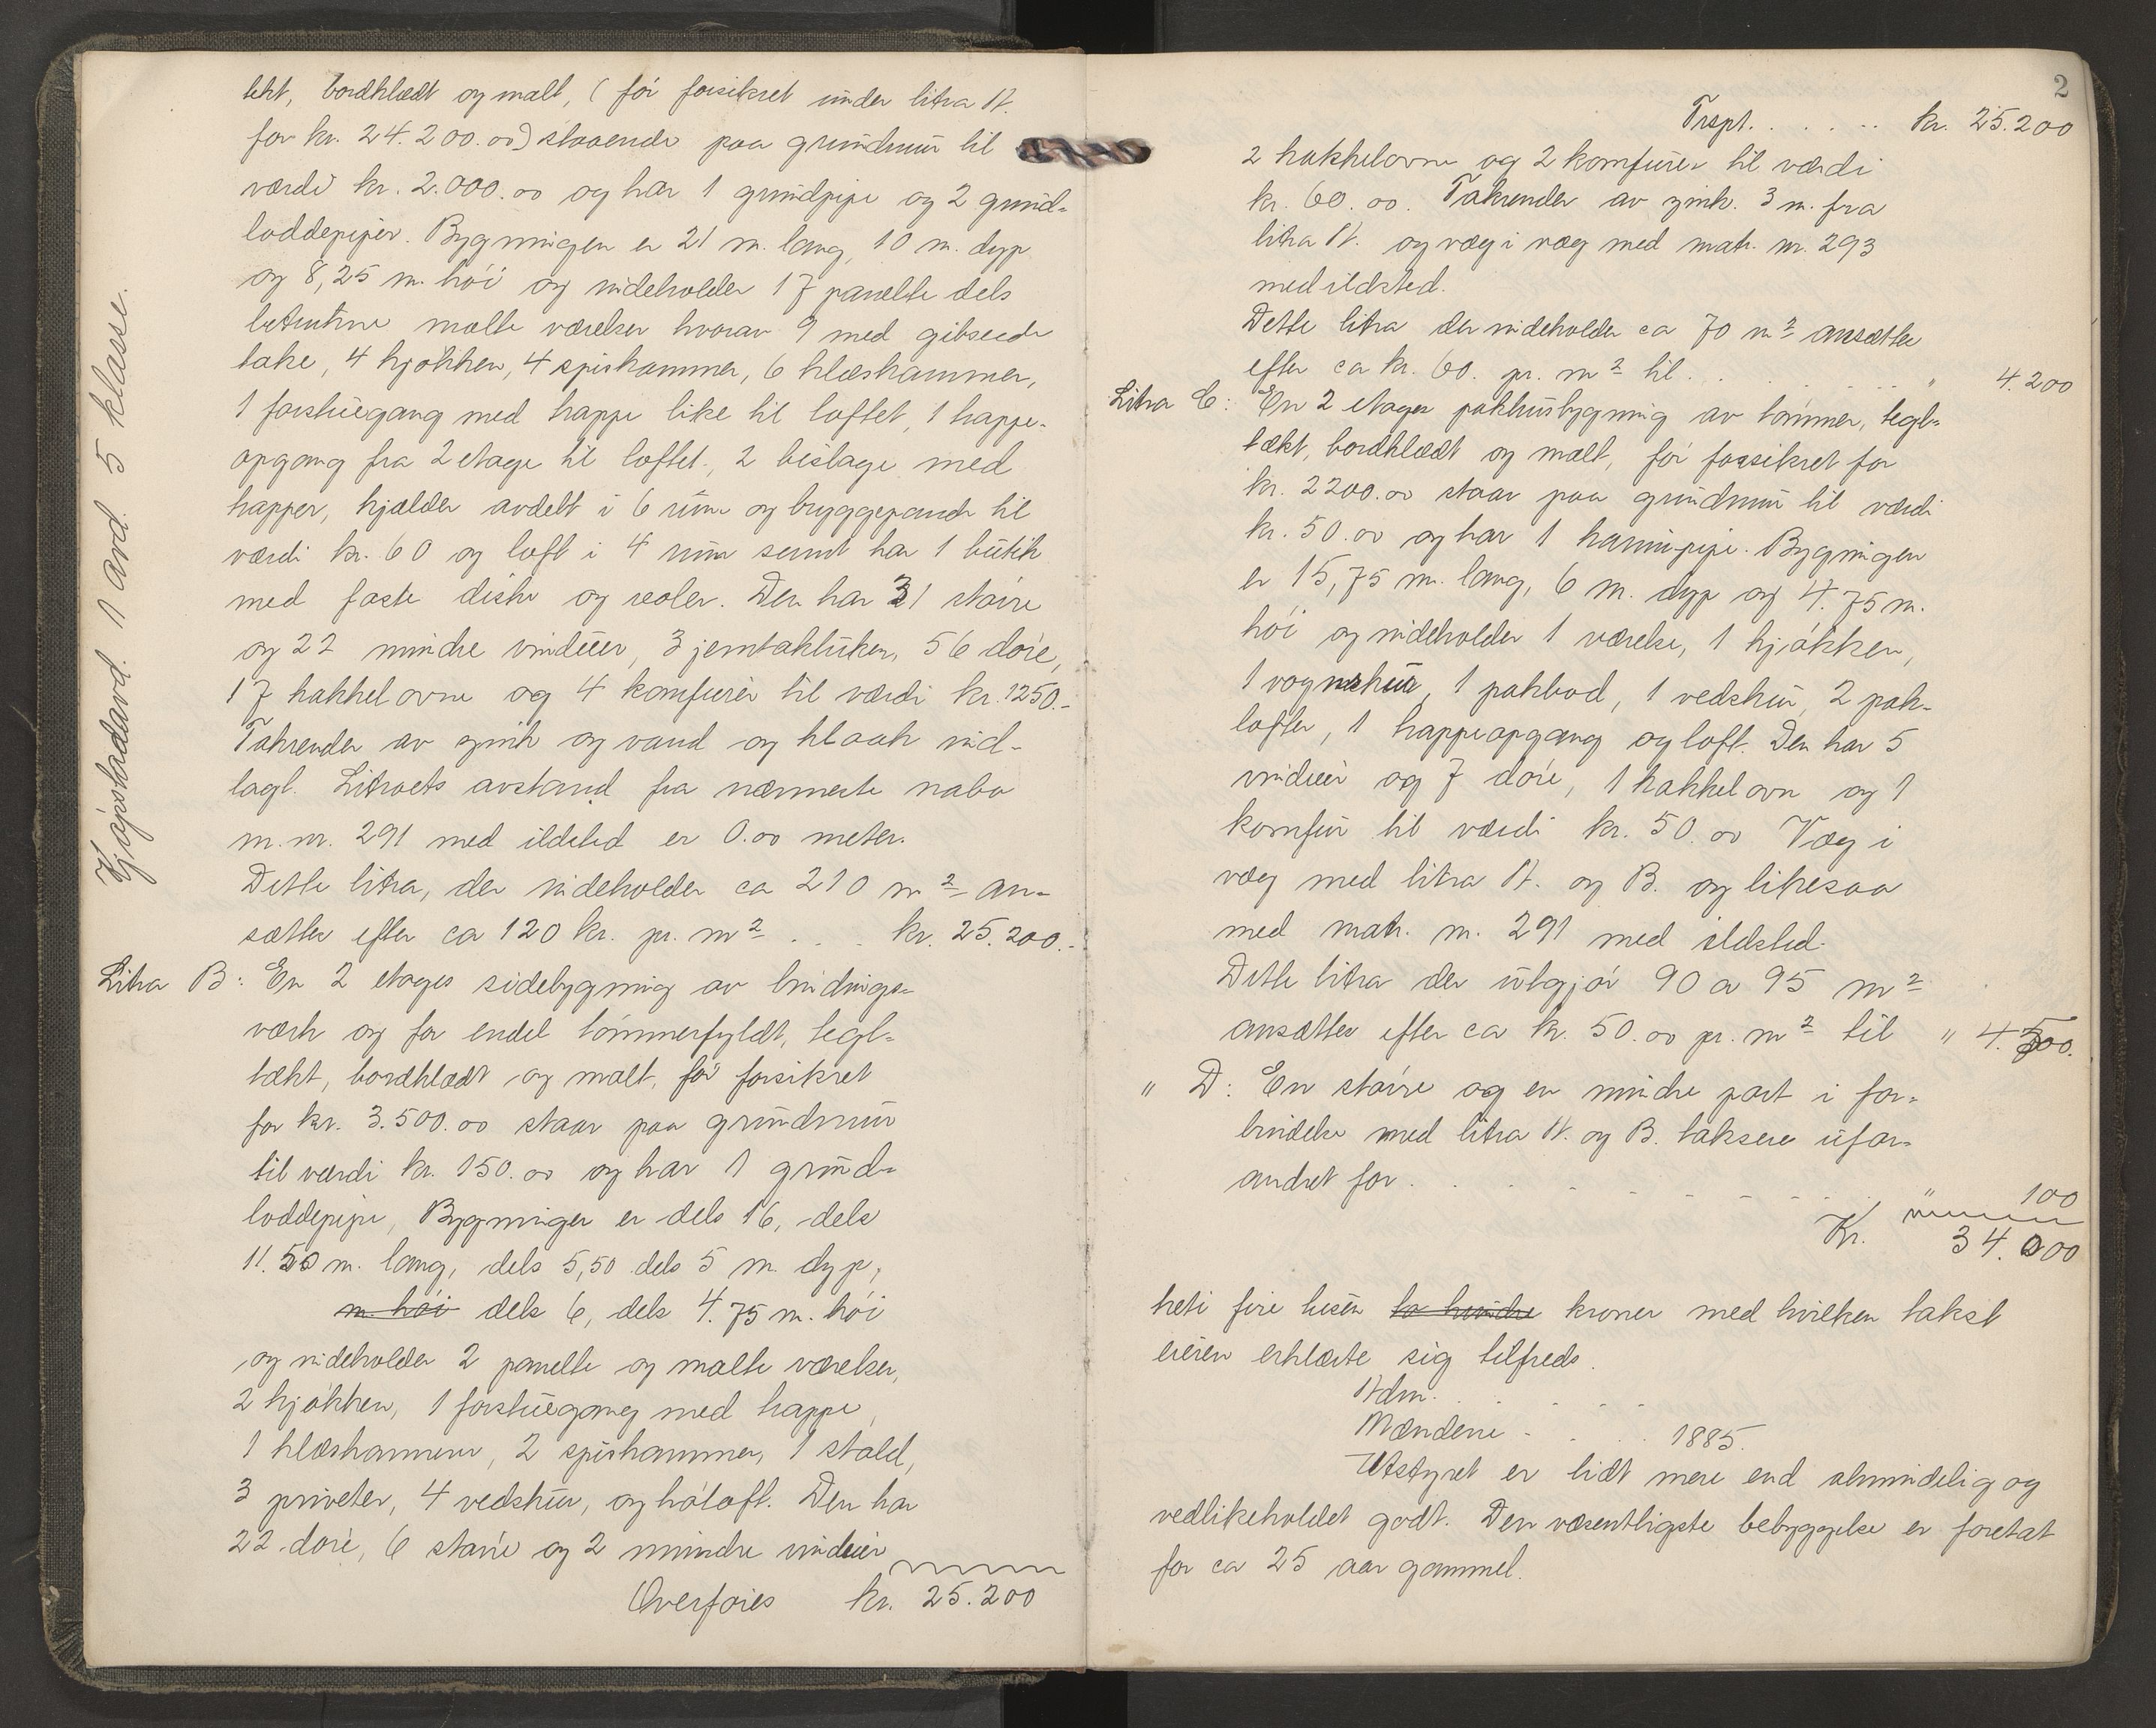 Kjøpstadavd. 1 avd. 5 klasse.
tækt, bordklædt og malt, (før forsikret under litra A.
for kr. 24.200.00) staaende paa grundmur til
værdi kr. 2.000.00 og har 1 grundpipe og 2 grund-
loddepiper. Bygningen er 21 m. lang, 10 m. dyp
og 8,25 m. høi og indeholder 17 panelte dels
betrukne malte værelser hvorav 9 med gibsede
take, 4 kjøkken, 4 spiskammer, 6 klæskammer,
1 forstuegang med trappe like til loftet, 1 trappe-
opgang fra 2 etage til loftet, 2 bislage med
trapper, kjælder avdelt i 6 rum og bryggepande til
værdi kr. 60 og loft i 4 rum samt har 1 butik
med faste diske og reoler. Den har 31 større
og 22 mindre vinduer, 3 jerntakluker, 56 døre,
17 kakkelovne og 4 komfurer til værdi kr. 1250.-
Takrender av zink og vand og kloak ind-
lagt. Litraets avstand fra nærmeste nabo
m.nr. 291 med ildsted er 0.00 meter.
Dette litra, der indeholder ca 210 m² an-
sættes efter ca 120 kr. pr. m² . . . kr. 25.200.-
Litra B: En 2 etages sidebygning av bindings-
verk og for endel tømmerfyldt, tegl-
tækt, bordklædt og malt, før forsikret
for kr. 3.500.00 staar paa grundmur
til værdi kr. 150.00 og har 1 grund-
loddepipe, Bygningen er dels 16, dels
11.50 m. lang, dels 5,50 dels 5 m. dyp,
m. høi dels 6, dels 4.75 m. høi
og indeholder 2 panelte og malte værelser,
2 kjøkken, 1 forstuegang med trappe,
1 klæskammer, 2 spiskammer, 1 stald,
3 priveter, 4 vedskur, og høloft. Den har
22 døre, 6 større og 2 mindre vinduer
Overføres kr. 25.200
2
Trspt. . . . . . kr. 25.200
2 kakkelovne og 2 komfurer til værdi
kr. 60.00. Takrender av zink. 3 m. fra
litra A. og væg i væg med matr. nr. 293
med ildsted.
Dette litra der indeholder ca 70 m² ansættes
efter ca kr. 60. pr. m² til . . . . . . " 4.200
Litra C: En 2 etages pakhusbygning av tømmer, tegl-
tækt, bordklædt og malt, før forsikret for
kr. 2200.00 staar paa grundmur til værdi
kr. 50.00 og har 1 kaminpipe. Bygningen
er 15,75 m. lang, 6 m. dyp og 4.75 m.
høi og indeholder 1 værelse, 1 kjøkken,
1 vognskur, 1 pakbod, 1 vedskur, 2 pak-
lofter, 1 trappeopgang og loft. Den har 5
vinduer og 7 døre, 1 kakkelovn og 1
komfur til værdi kr. 50.00 Væg i
væg med litra A. og B. og likesaa
med matr. nr. 291 med ildsted.
Dette litra der utgjør 90 a 95 m²
ansættes efter ca kr. 50.00 pr. m² til " 4.500.
" D: En større og en mindre port i for-
bindelse med litra A. og B. takseres ufor-
andret for . . . . . . . . . " 100
Kr. 34.000
treti fire tusen to hundre kroner med hvilken takst
eieren erklærte sig tilfreds.
Adm. . . . . .
Mændene - . . . 1885.
Utstyret er lidt mere end almindelig og
vedlikeholdet godt. Den væsentligste bebyggelse er foretat
for ca 25 aar gammel.